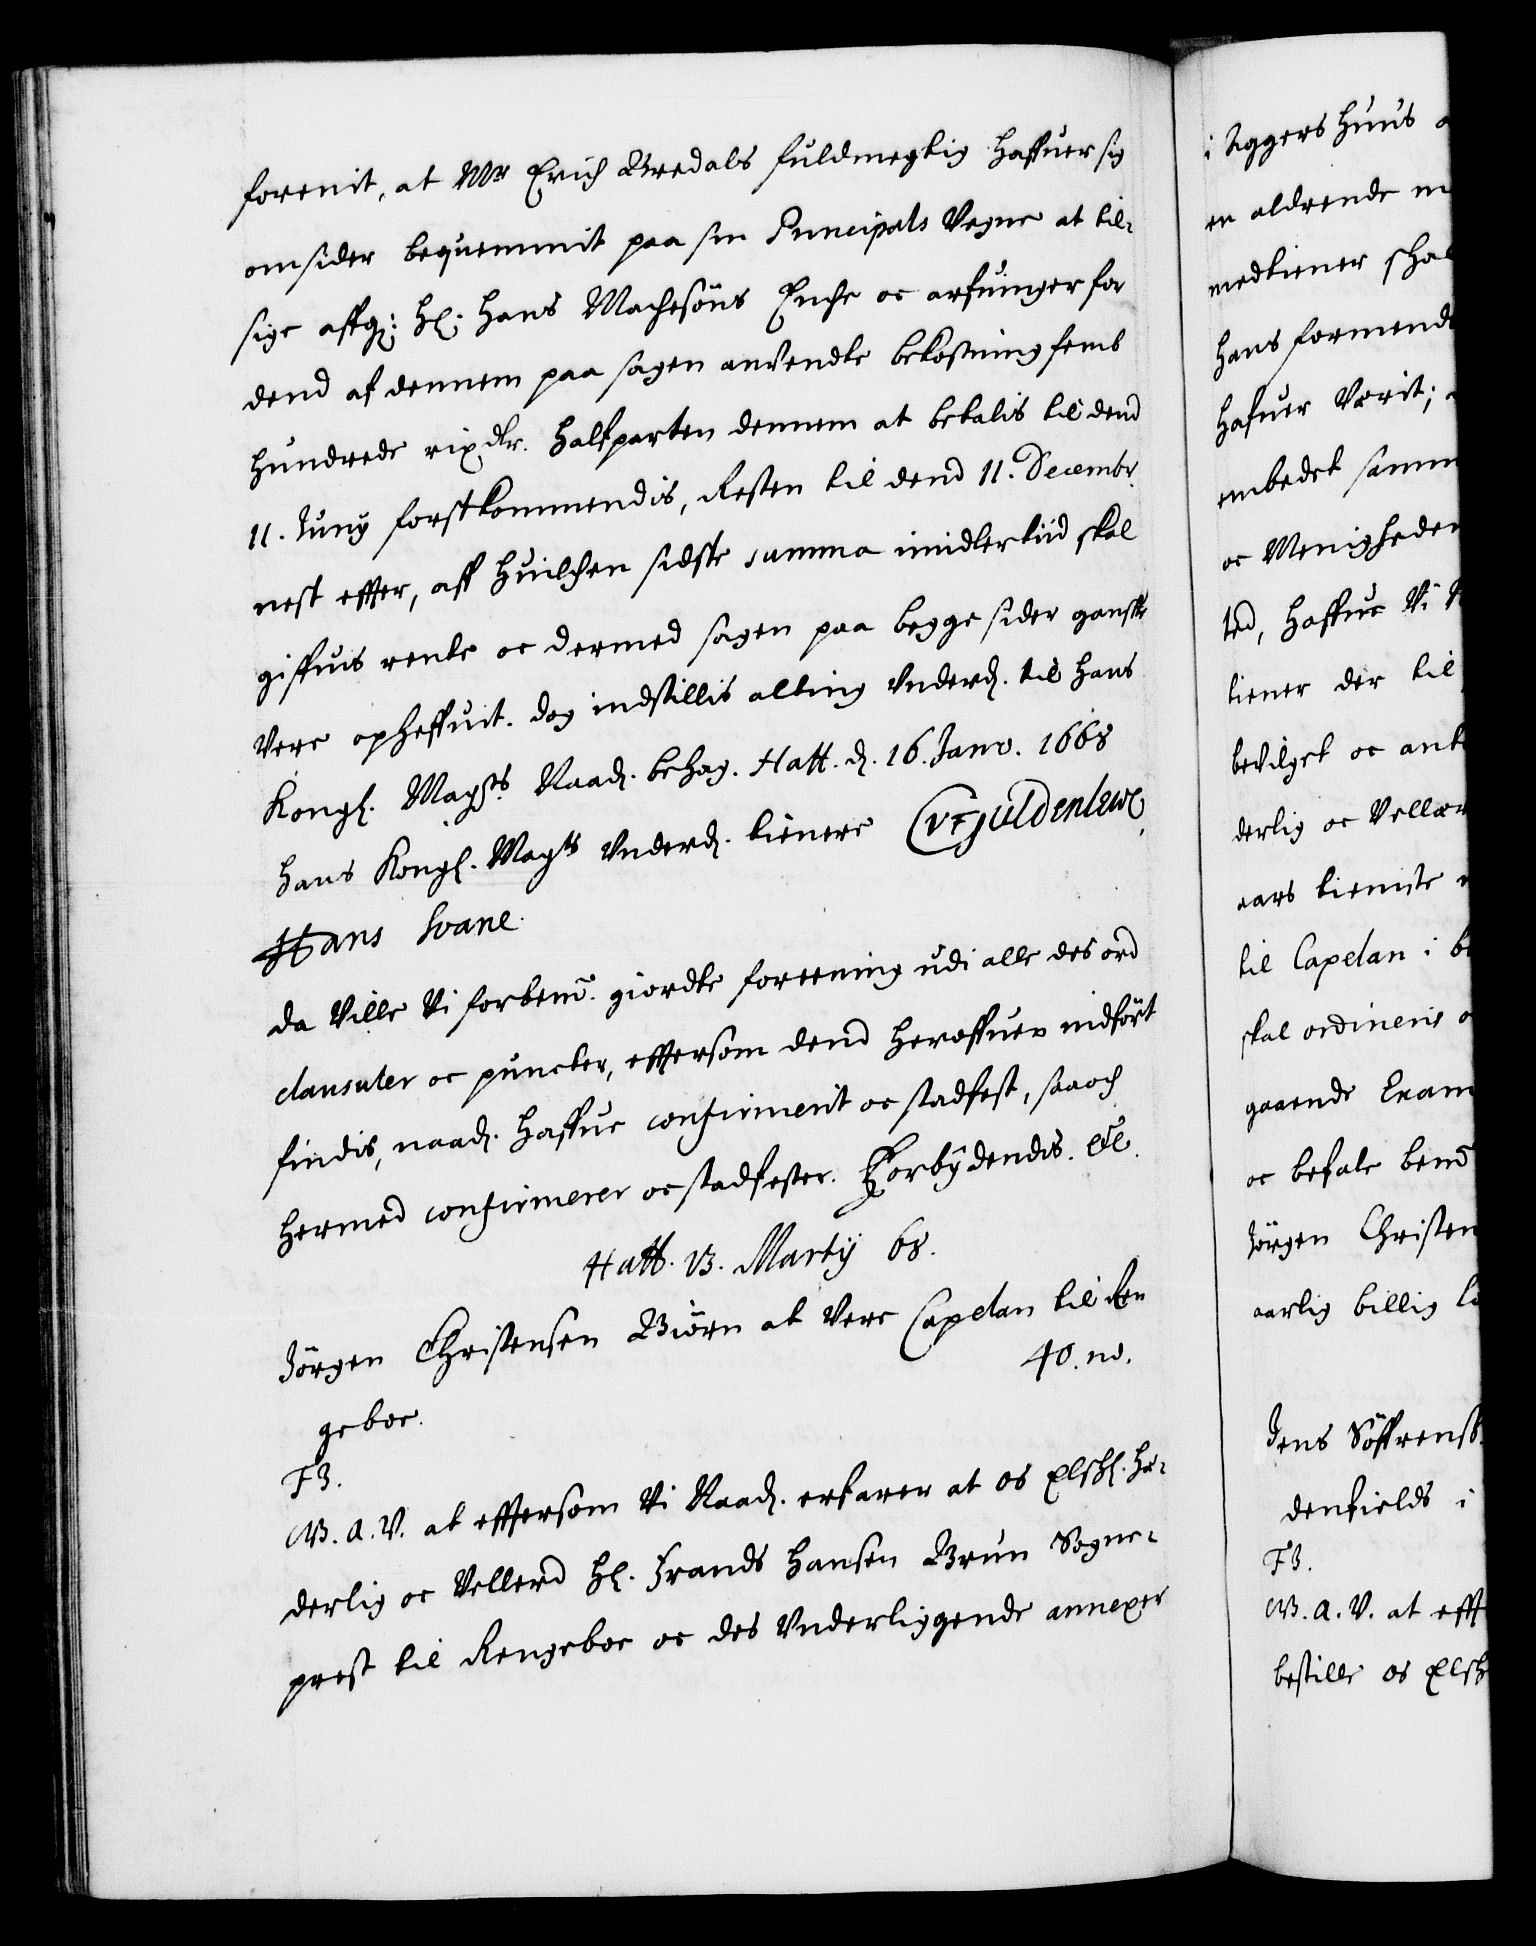 forenit, at Mr Erich Bredals fuldmegtig haffuer sig
omsider bequemmit paa sin Principals Vegne at til-
sige affg: Hl: Hans Machesöns Enche oc arfuinger for
dend af dennem paa sagen anvendte bekostning femb
hundrede rix dlr. halfparten dennem at betalis til dend
11. Junÿ forstkommendis, Resten til dend 11. Decembr.
nest effter, aff huilchen sidste summa imidlertiid skal
giffuis rente oc dermed sagen paa begge sider ganske
Vere opheffuit. dog indstillis alting Underd. til Hans
Kongl. Mayts. Naad. behag. Haff. d. 16. Janv. 1668
Hans Kongl. Mayts Underd. tienere UFGuldenlewe
Hans Svane.
da Ville Vi forbem. giordte foreening udi alle des ord
clausuler oc puncter, effersom dend heroffuen indfört
findis, naad. haffue confirmerit oc stadfest, saa och
hermed confirmerer oc stadfester. Forbÿdendis. etc.
Haff. 13. Martij 68.
Jörgen Christensen Biörn at Vere Capelan til Ren
40. no.
geboe.
F3.
G. A. V. at effersom Vi Naad. erfarer at os Elschl. he-
derlig oc Vellerd Hl. Frands Hansen Brun Sogne-
prest til Rengeboe oc des Underliggende annexer
i Aggershuus
en aldrende
medtiener skal
hans formend
hafuer Verit;
embedet samm
oc Menigheden
ted, haffue Vi
tiener der til
bevilget oc ant
derlig oc Vellær
aars tieniste
til Capelan i
skal ordineris
gaaende Exam
oc befale bem
Jörgen Christen
aarlig billig
Jens Söffrens
denfields i
F3.
G. A. V. at eff
bestille os Elsk